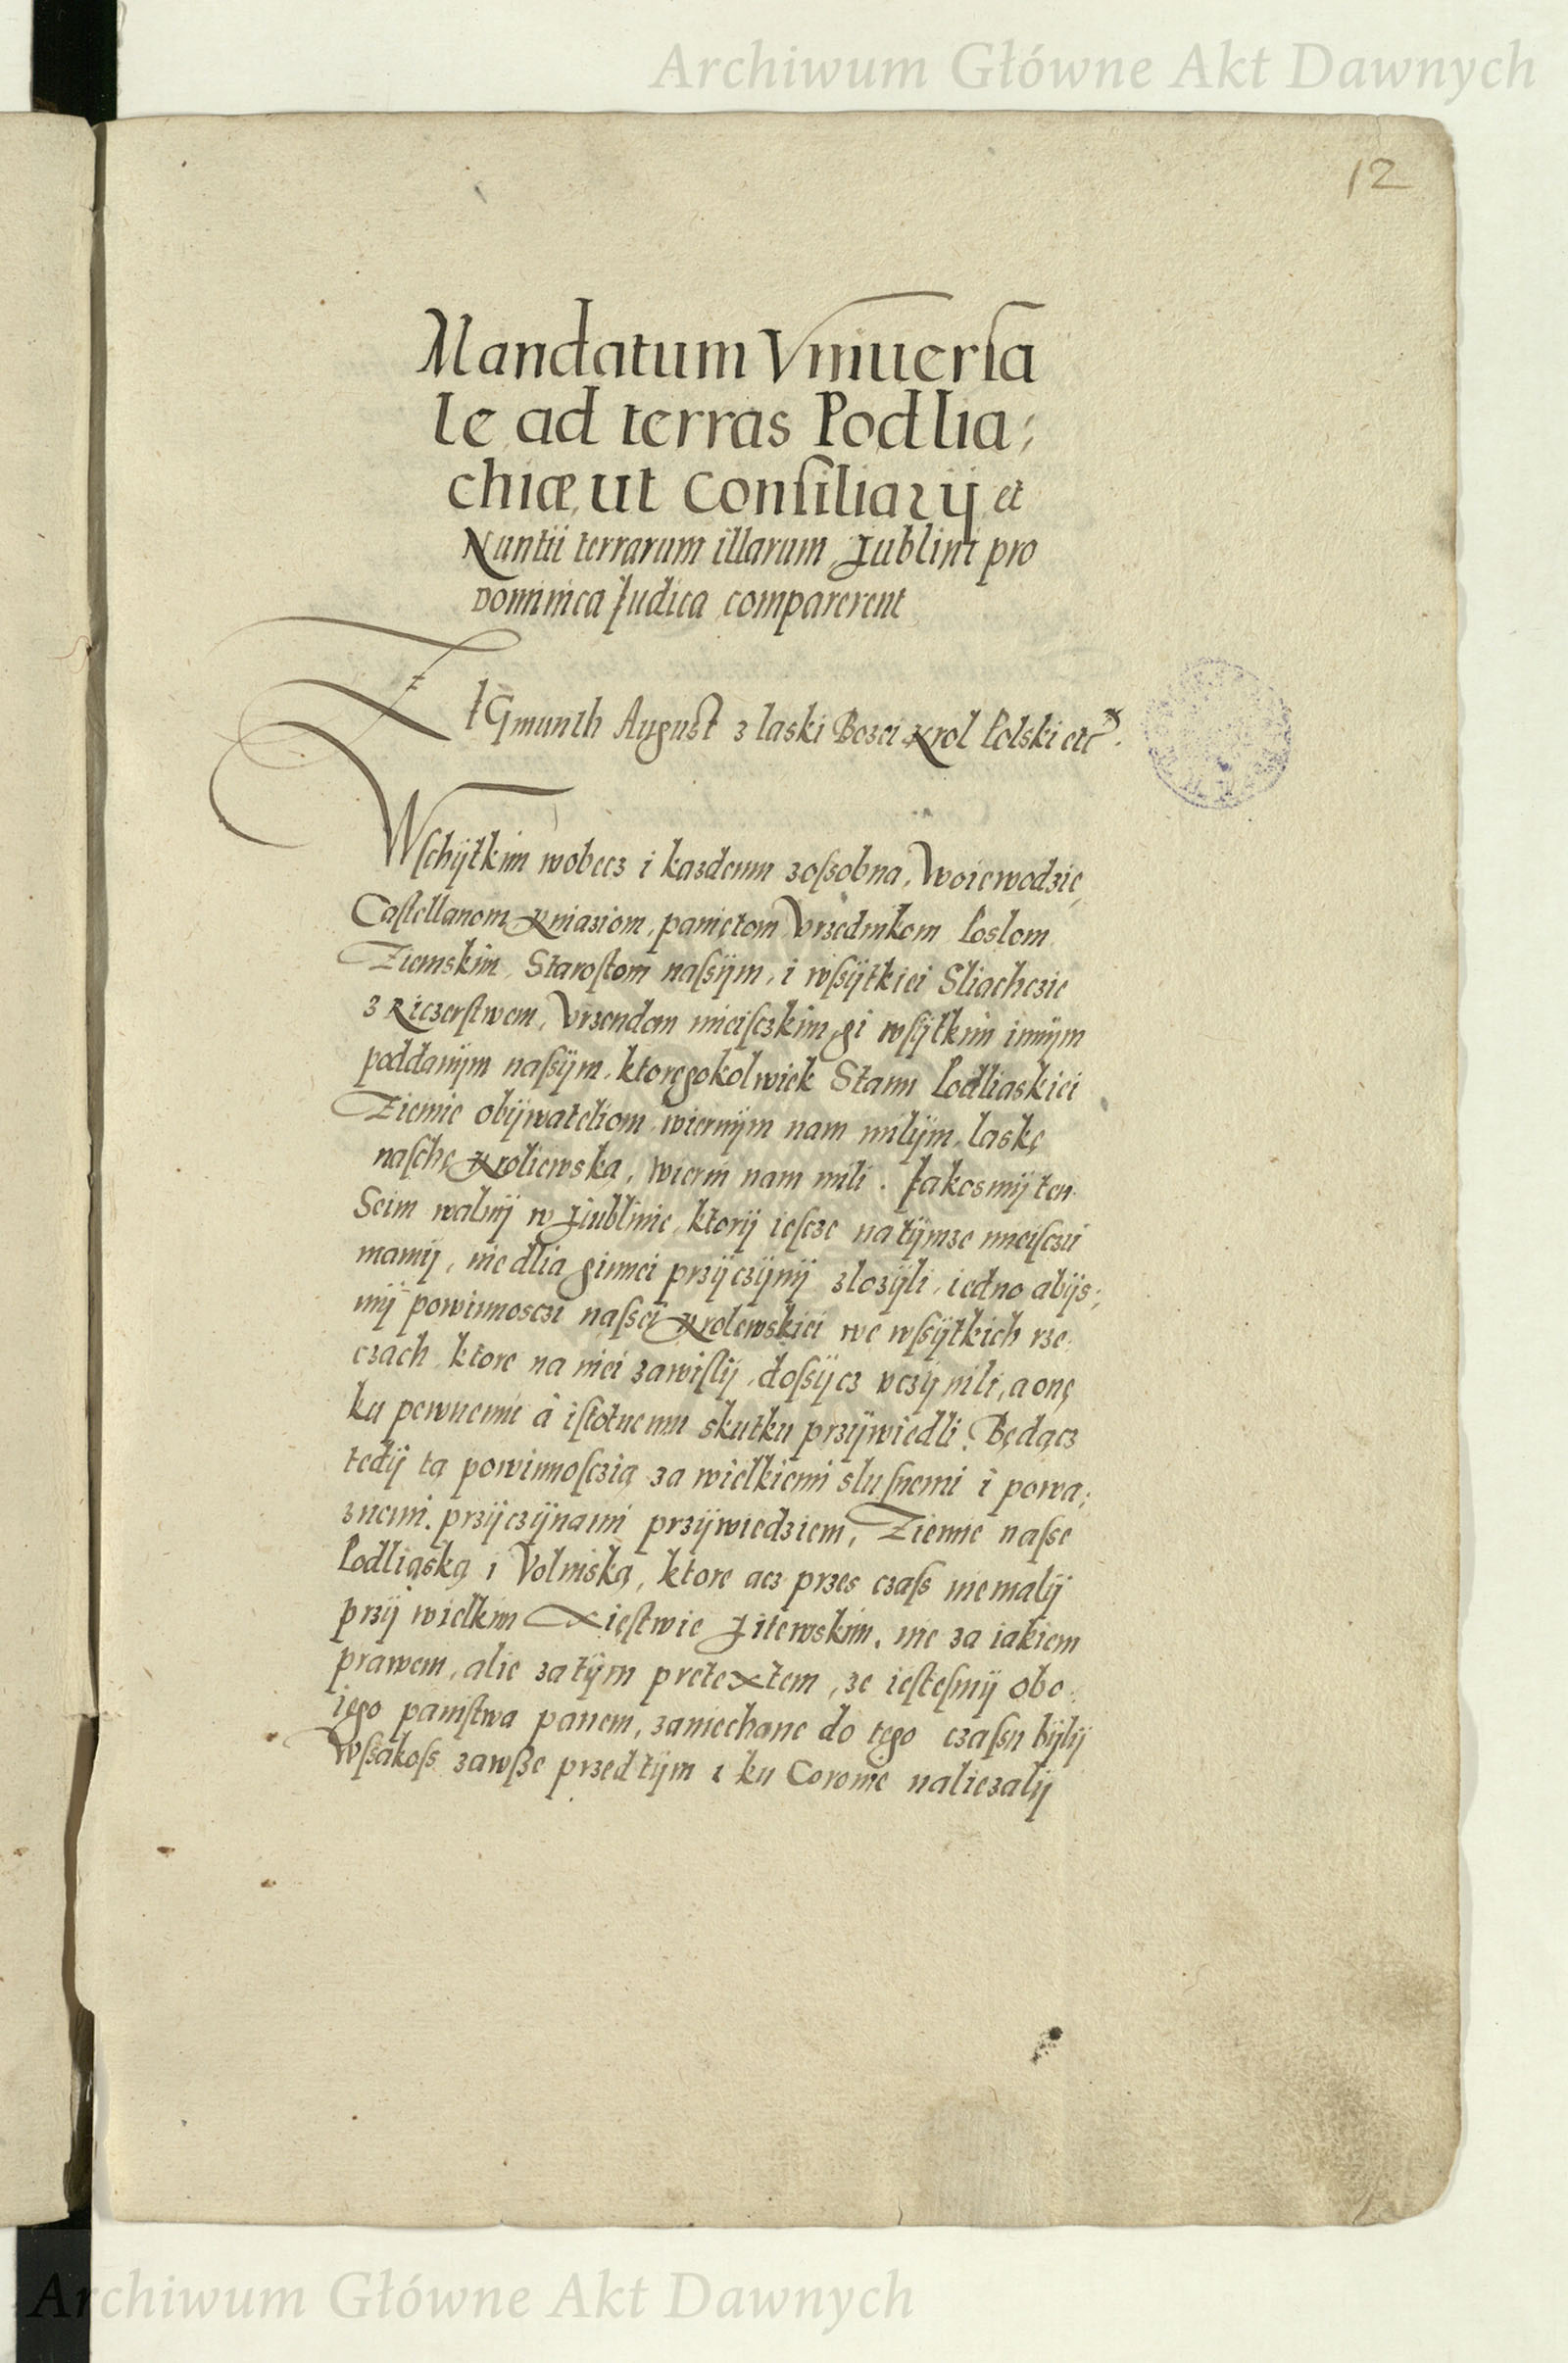 Archiwum Główne Akt Dawnych
12
Mandatum Vniuersa
le ad terras Podlia:
chiæ, ut Consiliarij et
Nuntii terrarum illarum Lublini pro
Dominica Judica comparerent
ZIGmunth August z laski Bozei Krol Polski etc.
Wschÿtkim wobecz i kazdemu zossobna, Woiewodzie,
Castellanom Kniaziom, paniętom Vrzednikom Poslom
Ziemskim, Starostom nassÿm, i wssÿtkiei Sliachczie
z Riczerstwem, Vrzendom mieisczkim, gi wssÿtkim innÿm
poddanÿm nassÿm, ktoręgokolwiek Stanu Podliaskiei
Ziemie obÿwateliom wiernÿm nam milÿm, laskę
naschę Kroliewską, Wierni nam mili. Jakosmÿ ten
Seim walnÿ w Liublinie, ktorÿ iescze na tÿmze mieisczu
mamÿ, nie dlia ginnei przÿczÿnÿ zlozÿli, iedno abÿs:
mÿ powinnosczi nassei Krolewskiei we wssÿtkich rze:
czach ktore na niei zawislÿ, dossÿcz vczÿnili, a onę
ku pewnemu à istotnemu skutku przÿwiedli. Będącz
tedÿ tą powinnosczią za wielkiemi slusnemi i powa:
znemi przÿczÿnami przÿwiedziem, Ziemie nasse
Podliąską i Volinską, ktore acz przes czass niemalÿ
przÿ wielkim Xięstwie Litewskim, nie za iakiem
prawem, alie za tÿm pretextem, ze iestesmÿ obo:
iego panistwa panem, zaniechane do tego czassu bÿlÿ
Wssakoss zawsze przed tÿm i ku Coronie naliezalÿ
Archiwum Główne Akt Dawnych